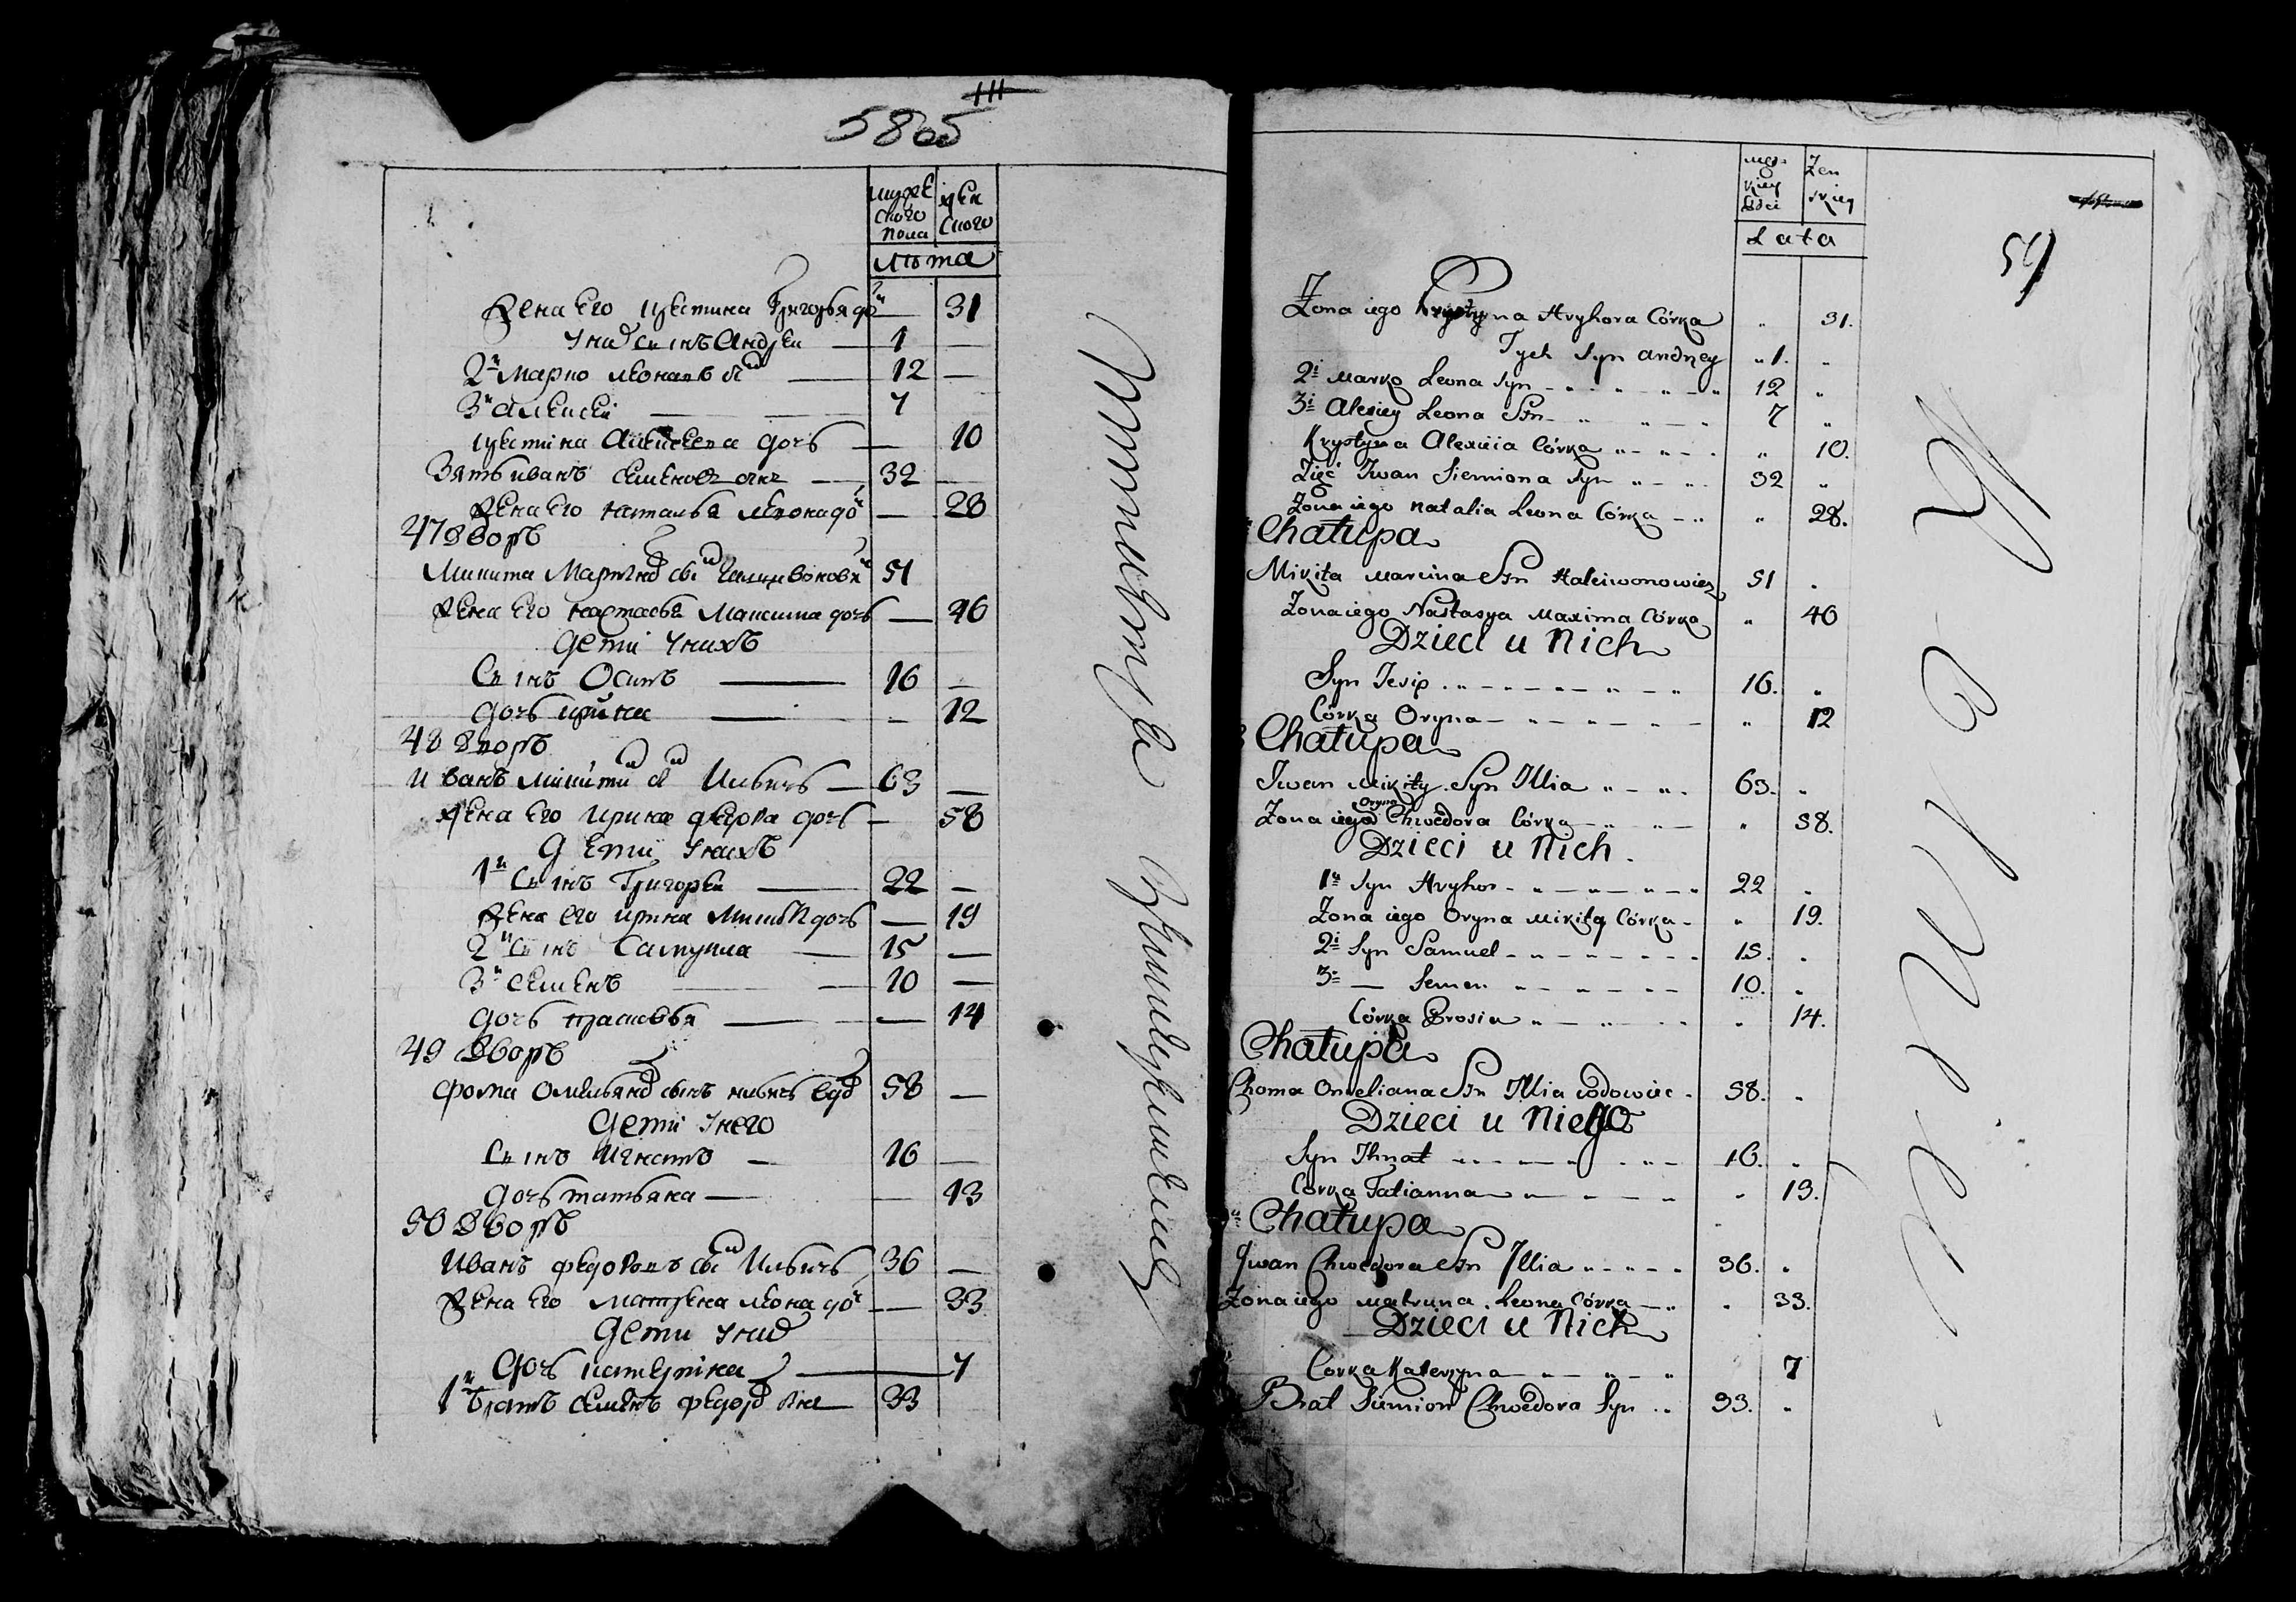 5865
111
мужеского пола
женского
Лѣта
жена Его Кристина Григорья доч 31
У них сынъ Андрей 1
2й Марко Леоновъ сн 12
3й Алексей 7
Кристина Алексеева дочь 10
Зять иванъ Семеновъ снъ 32
жена Его Наталья Леона доч 28
47 Дворъ
Микита Мартина сын Галиевонович 51
жена Его Настасья Максима дочь 40
Дети у нихъ
Сынъ Осипъ 16
дочь Ирина 12
48 Дворъ
Иванъ Микиты сн Ильичъ 63
жена Его Ирина Федора дочь 58
Дети у нихъ
1й Сынъ Григорей 22
жена его ирина Микиты дочь 19
2й Сынъ Самуила 15
3й Семенъ 10
дочь Прасковья 14
49 Дворъ
Фома Омельяна сынъ Ильичъ вдо 58
Дети у него
Сынъ Игнатъ 16
дочь татьяна 13
50 Дворъ
Иванъ Федоровъ сын Ильичъ 36
жена Его Матрена Леона доч 33
Дети у них
Дочь катерина 7
1й Братъ Семенъ Федора снъ 33
męskiey płci
Żenskiey
Lata
54
Żona iego Krystyna Hryhora Córka 31.
Tych Syn andrzey 1.
2i Marko Leona Syn 12
3i Alexiey Leona Syn 7
Krystyna Alexieia Córka 10.
Zięć Iwan Siemiona Syn 32
Żona iego Natalia Leona Córka 28.
Chałupa
Mikita Marcina Syn Haleiwonowicz 51
Żona iego Nastasya Maxima Córka 40
Dzieci u Nich
Syn Iesip 16.
Córka Oryna 12
Chałupa
Iwan Mikity Syn Illia 63.
Żona iego Oryna Chwedora Córka 58.
Dzieci u Nich.
1y Syn Hryhor 22
Żona iego Oryna Mikity Córka 19.
2i Syn Samuel 15.
3i — Semen 10.
Córka Prosia 14.
Chałupa
Choma Omeliana Syn Illia wdowiec 58.
Dzieci u Niego
Syn Ihnat 16.
Córka Tatianna 13.
Chałupa
Iwan Chwedora Syn Illia 36.
Żona iego Matruna Leona Córka 33.
Dzieci u Nich
Corka Kateryna 7
Brat Siemion Chwedora Syn 33.